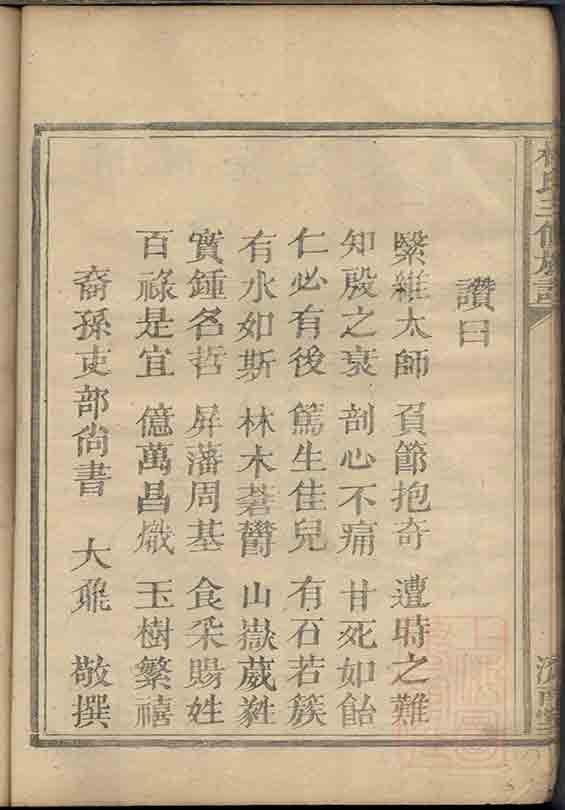 林氏三修族譜
讚曰
繄維太師　負節抱奇　遭時之難
知殷之衰　剖心不痛　甘死如飴
仁必有後　篤生佳兒　有石若簇
有水如斯　林木蓊鬱　山嶽葳蕤
實鍾名哲　屏藩周基　食采賜姓
百祿是宜　億萬昌熾　玉樹繁禧
裔孫吏部尚書　大鼐　敬撰
濟南堂